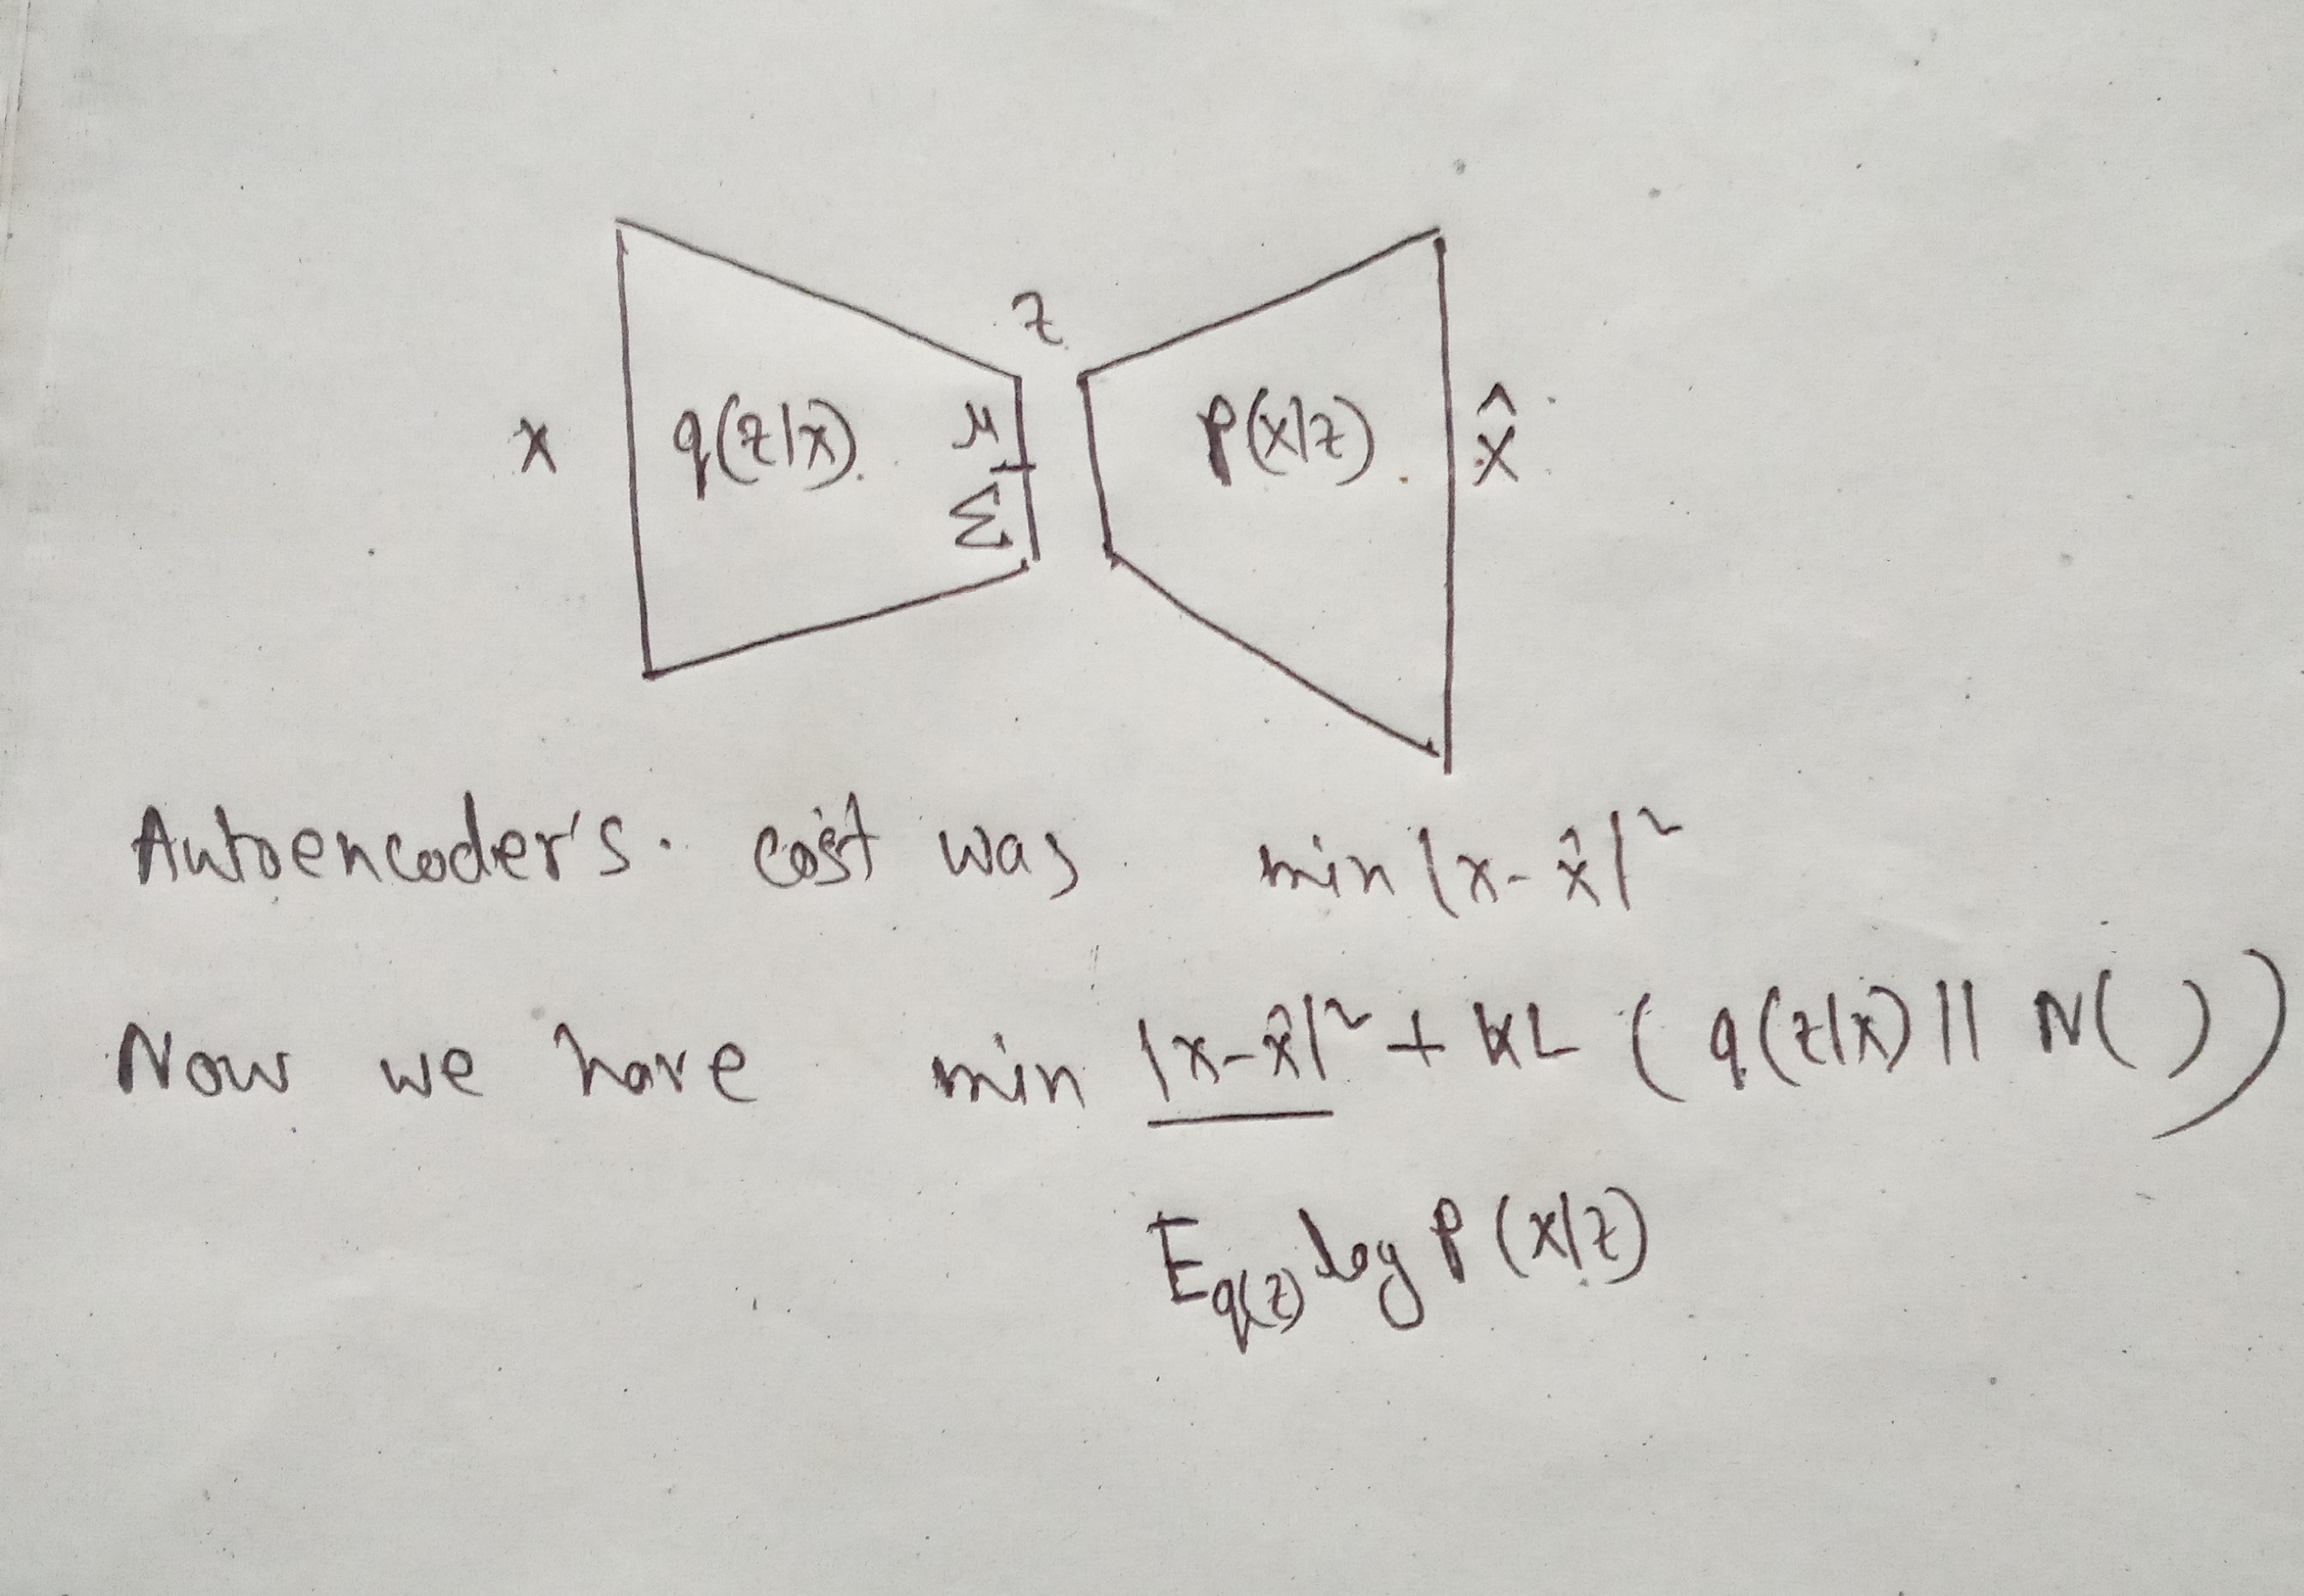 z
x q(z|x) μ Σ p(x|z) x̂
Autoencoder's cost was min |x-x̂|²
Now we have min |x-x̂|² + KL ( q(z|x) || N( ))
E_q(z) log P(x|z)